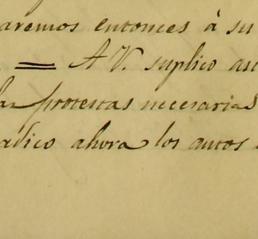 aremos entonces à su
= A V. suplico asi
las protestas necesarias
adico ahora los autos